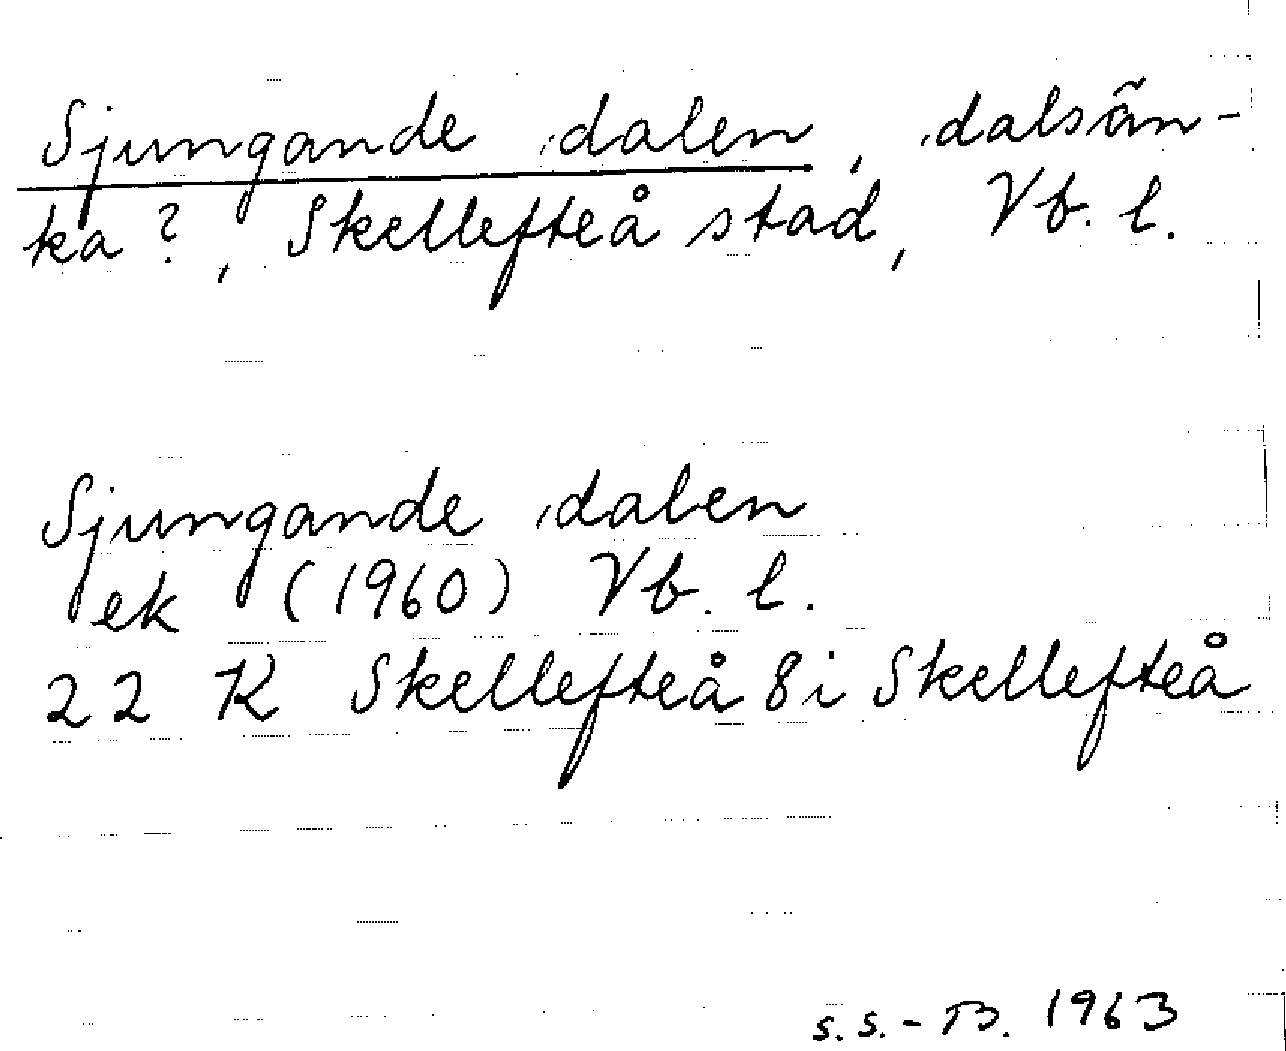 Sjungande dalen, dalsän-
ka?, Skellefteå stad, Vb. l.
Sjungande dalen
ek (1960) Vb. l.
22 K Skellefteå 8i Skellefteå
S. S. - B. 1963